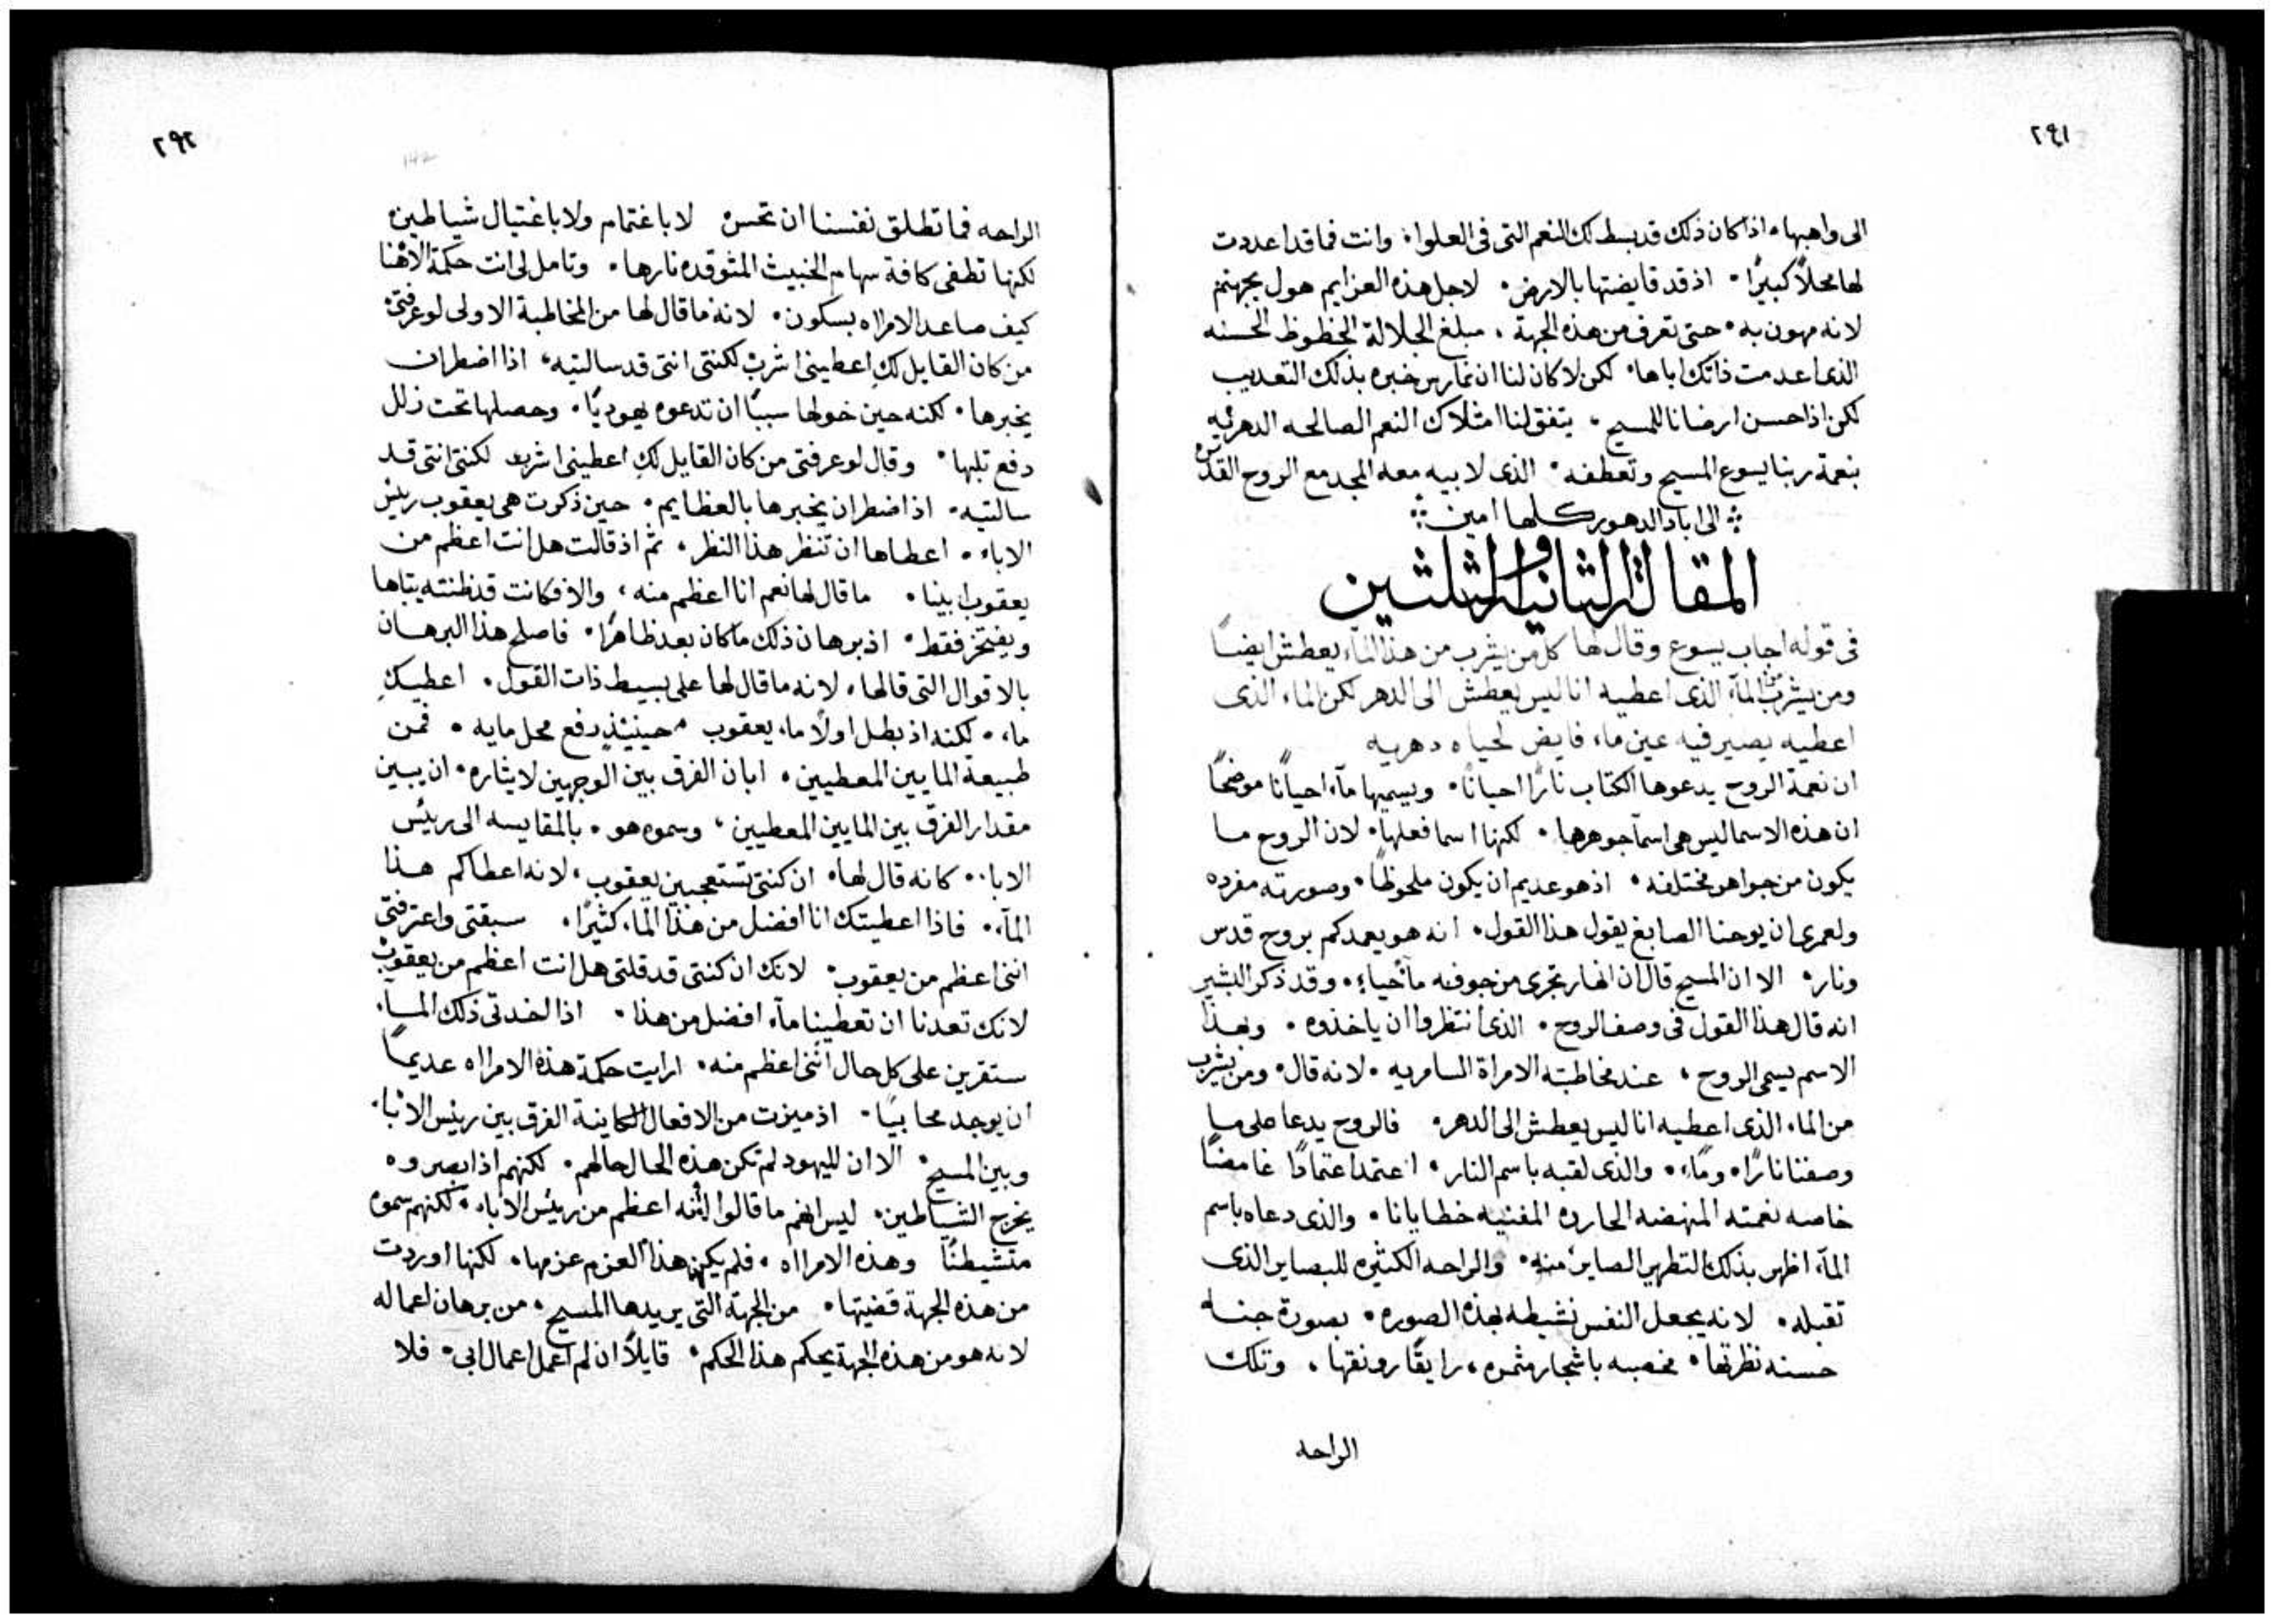 ٢٩١
الى واهبها. اذا كان ذلك قد بسط لك النعم التى فى العلو. وانت فما قد اعددت
لها محلاً كبيرًا. اذ قد قايضتها بالارض. لاجل هذه العزايم هول بجهنم
لانه مهون به. حتى تعرف من هذه الجهة، مبلغ الجلالة الحظوظ الحسنه
الذى اعدمت ذاتك اياها. لكن لا كان لنا ان نمارس خبره بذلك التعديب
لكن اذا حسن ارضانا للمسيح، يتفق لنا امتلاك النعم الصالحه الدهريه
بنعمة ربنا يسوع المسيح وتعطفه. الذى لابيه معه المجد مع الروح القدس
الى اباد الدهور كلها امين
المقالة الثانية والثلثين
فى قوله اجاب يسوع وقال لها كل من يشرب من هذا المآء يعطش ايضًا
ومن يشرب من المآء الذى اعطيه انا ليس يعطش الى الدهر لكن الماء الذى
اعطيه يصير فيه عين ماء فايض لحياه دهريه
ان نعمة الروح يدعوها الكتاب نارًا احيانًا. ويسميها مآء احيانًا موضحًا
ان هذه الاسما ليس هى اسمآ جوهرها. لكنها اسما فعلها. لان الروح ما
يكون من جواهر مختلفه. اذ هو عديم ان يكون ملحوظًا. وصورته مفرده
ولعمرى ان يوحنا الصابغ يقول هذا القول. انه هو يعمدكم بروح قدس
ونار. الا ان المسيح قال ان انهار تجرى من جوفه مآ حياء. وقد ذكر البشير
انه قال هذا القول فى وصف الروح. الذى انتظروا ان ياخذوه. وبهذا
الاسم يسمى الروح، عند مخاطبته الامراة السامريه. لانه قال. ومن يشرب
من الماء الذى اعطيه انا ليس يعطش الى الدهر. فالروح يدعا على ما
وصفنا نارًا. ومآء. والذى لقبه باسم النار. اعتمد اعتمادًا غامضًا
خاصه نعمته المنهضه الحاره المفنيه خطايانا. والذى دعاه باسم
المآء اظهر بذلك التطهير الصاير منه. والراحه الكثيره للبصاير الذى
تقبله. لانه يجعل النفس نشيطه بهذه الصوره. بصورة جنه
حسنه نظرتها. مخصبه باشجار مثمره، رايقًا رونقها، وتلك
الراحه
٢٩٢
142
الراحه فما تطلق نفسنا ان تحس لا باغتمام ولا باغتيال شياطين
لكنها تطفى كافة سهام الخبيث المتوقده نارها. وتامل لى انت حكمة الاهنا
كيف صاعد الامراه بسكون. لانه ما قال لها من المخاطبة الاولى لو عرفتى
من كان القايل لكِ اعطينى اشرب لكنتى انتى قد سالتيه، اذا اضطر ان
يخبرها. لكنه حين خولها سببًا ان تدعوه يهوديًا. وحصلها تحت زلل
دفع تلبها. وقال لو عرفتى من كان القايل لكِ اعطينى اشرب لكنتى انتى قد
سالتيه. اذا اضطر ان يخبرها بالعظايم. حين ذكرت هى يعقوب ريئس
الاباء. اعطاها ان تنظر هذا النظر، ثم اذ قالت هل انت اعظم من
يعقوب ابينا. ما قال لها نعم انا اعظم منه، والا فكانت قد ظنته يتباها
ويفتخر فقط. اذ برهان ذلك ما كان بعد ظاهرًا. فاصلح هذا البرهان
بالاقوال التى قالها، لانه ما قال لها على بسيط ذات القول. اعطيكِ
ماء. لكنه اذ بطل اولاً ماء يعقوب. حينيئذٍ رفع محل مايه. فمن
طبيعة المايين المعطيين. ابان الفرق بين الوجهين لايثاره. ان يبين
مقدار الفرق بين المايين المعطيين، وسموه هو. بالمقايسه الى ريئس
الابا. كانه قال لها. ان كنتى تستعجبين يعقوب. لانه اعطاكم هذا
المآء. فاذا اعطيتك انا افضل من هذا المآء كثيرًا. سبقتى واعترفتى
اننى اعظم من يعقوب. لانك ان كنتى قد قلتى هل انت اعظم من يعقوب
لانك تعدنا ان تعطينا مآء افضل من هذا. اذا اخدتى ذلك المآء
ستقرين على كل حال اننى اعظم منه. ارايت حكمة هذه الامراه عديمًا
ان يوجد محابيًا. اذ ميزت من الافعال الكاينة الفرق بين ريئس الابآء
وبين المسيح. الا ان لليهود لم تكن هذه الحال حالهم. لكنهم اذ ابصروه
يخرج الشياطين. ليس انهم ما قالوا انه اعظم من ريئس الاباء. لكنهم سموه
متشيطنًا وهذه الامراه. فلم يكن هذا العزم عزمها. لكنها اوردت
من هذه الجهة قضيتها. من الجهة التى يريدها المسيح. من برهان اعماله
لانه هو من هذه الجهة يحكم هذا الحكم. قايلاً ان لم اعمل اعمال ابى. فلا